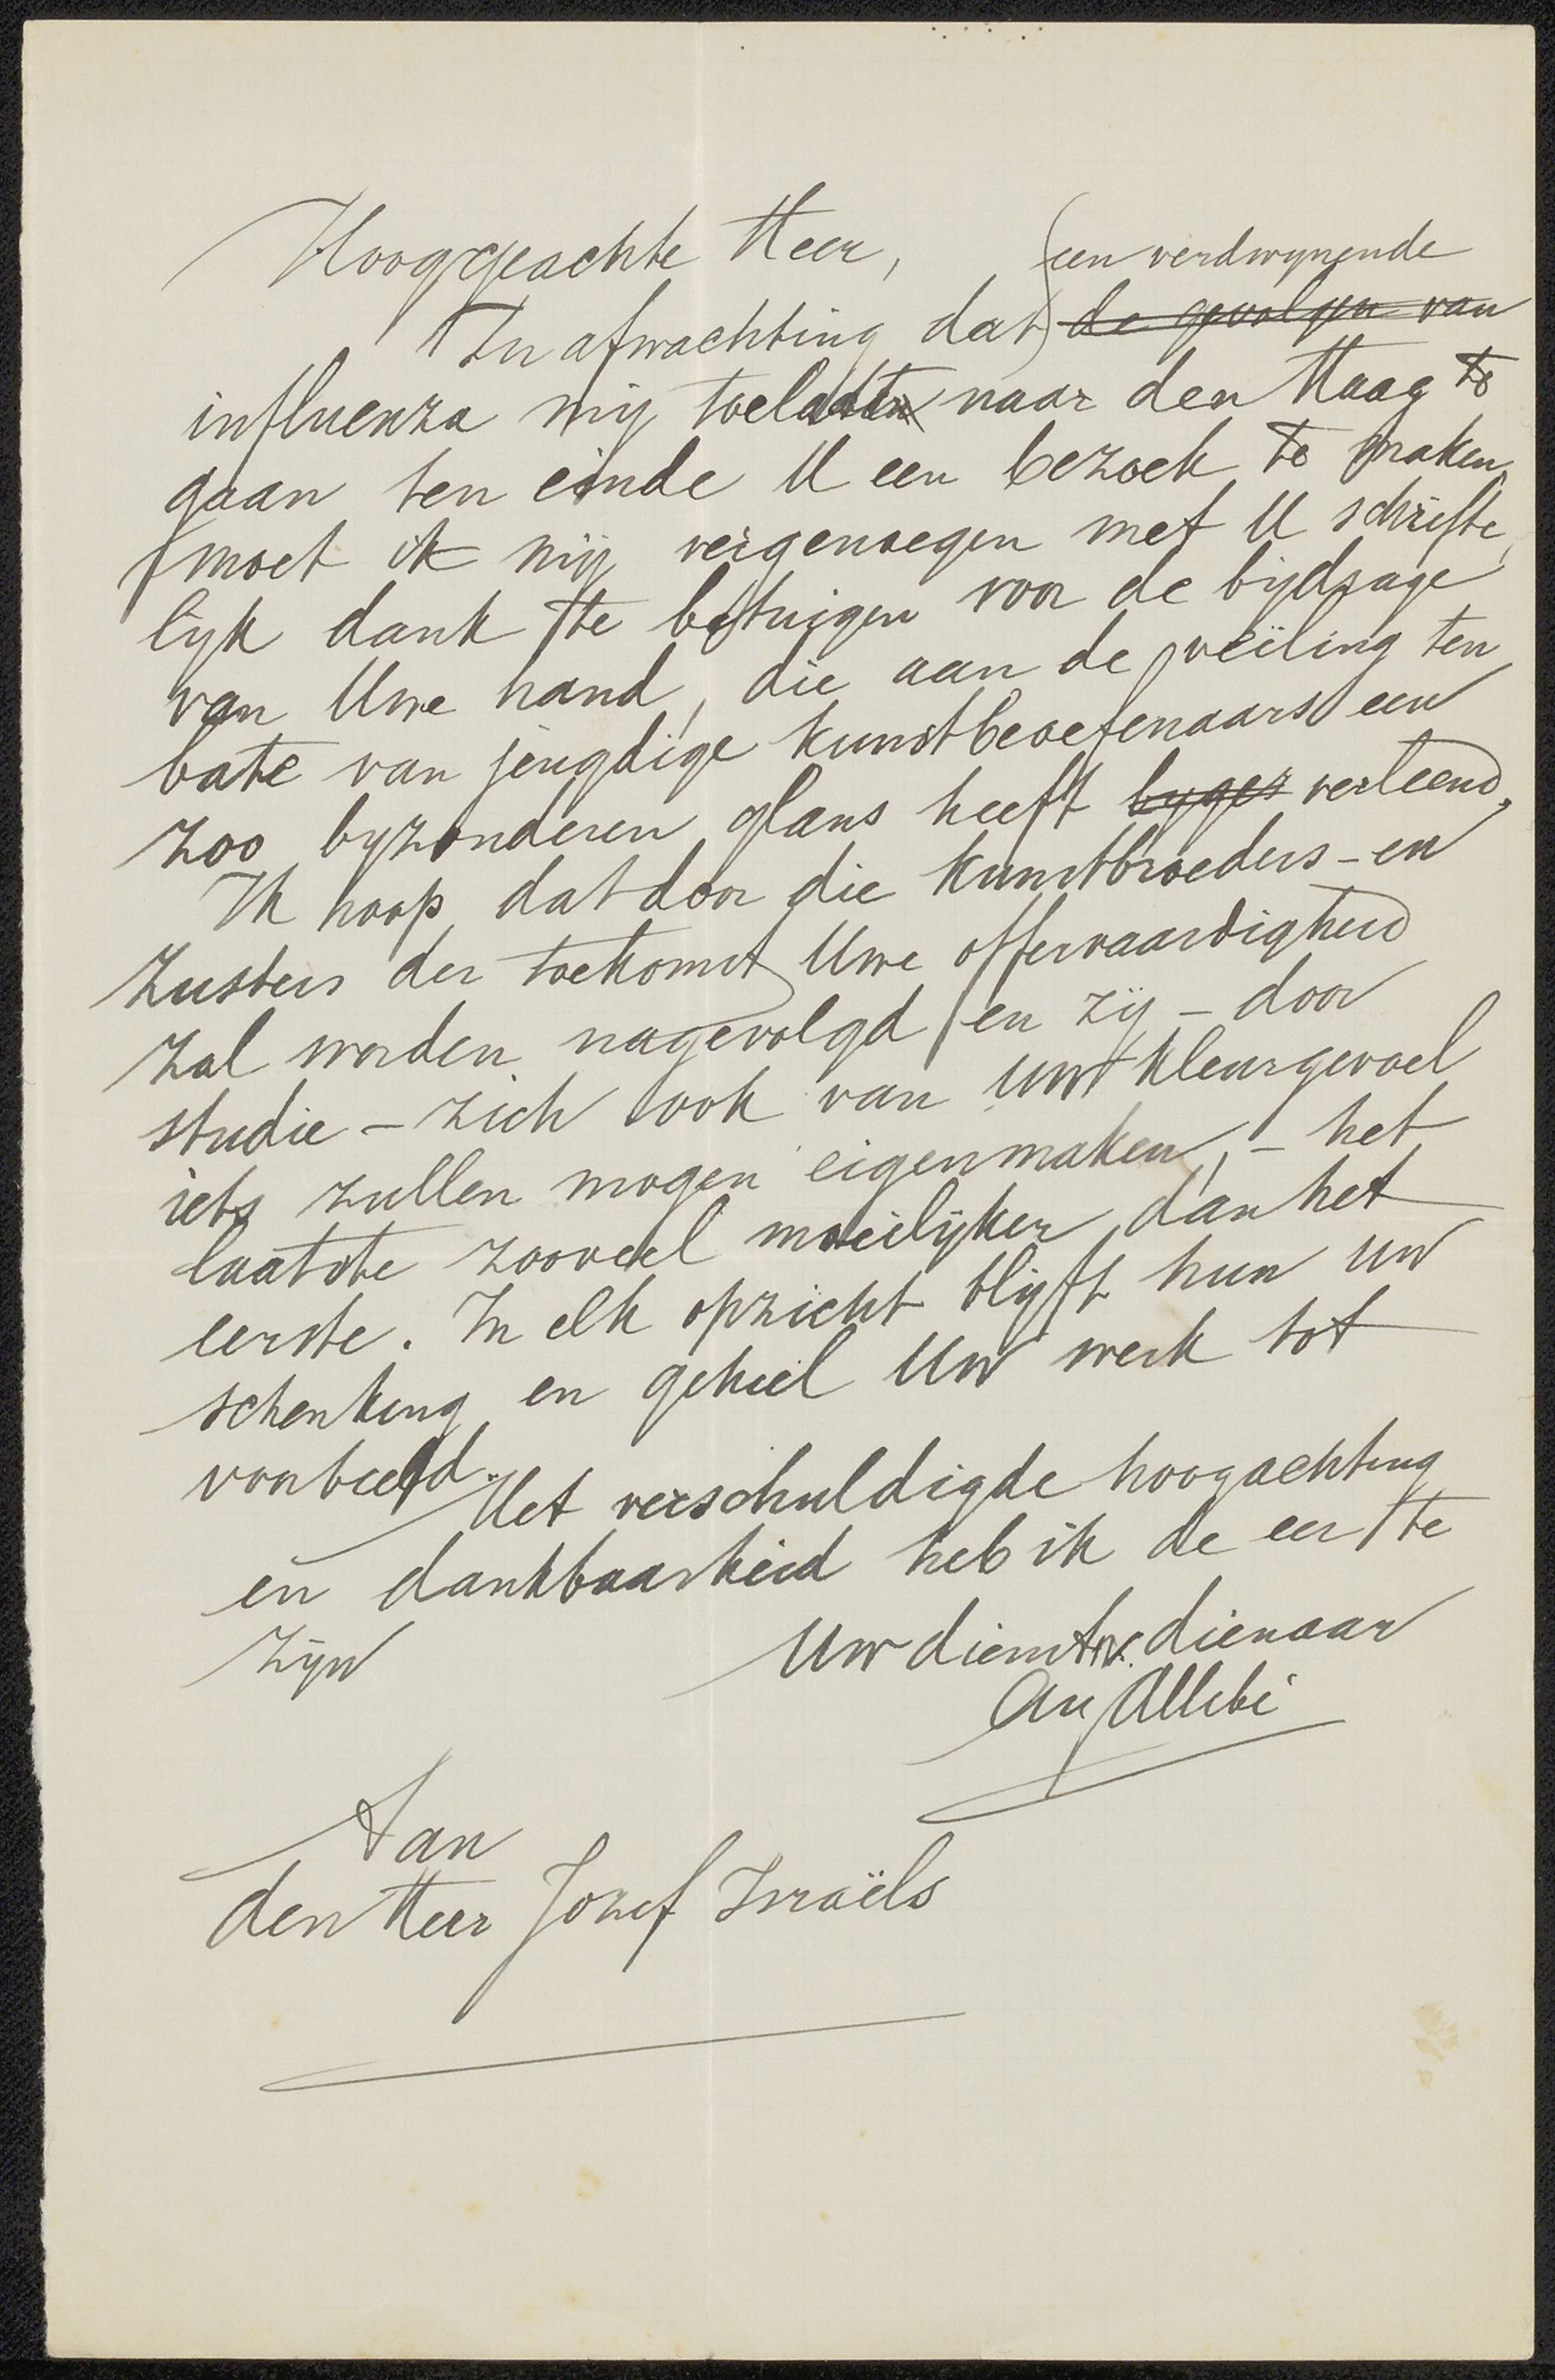 Hooggeachte Heer,
een verdwynende
In afwachting dat de gevolgen van
influenza mij toelaten naar den Haag te
gaan ten einde U een bezoek te maken,
moet ik mij vergenoegen met U schrifte
lijk dank te betuigen voor de bijdrage
van Uwe hand, die aan de veiling ten
bate van jeugdige kunstbeoefenaars een
zoo byzonderen glans heeft byger verleend.
Ik hoop dat door die kunstbroeders - en
zusters der toekomst Uwe offervaardigheid
zal worden nagevolgd en zij - door
studie - zich ook van uw kleurgevoel
iets zullen mogen eigenmaken, - het
laatste zooveel moeilijker dan het
eerste. In elk opzicht blijft hun uw
schenking en geheel Uw werk tot
voorbeeld.
Met verschuldigde hoogachting
en dankbaarheid heb ik de eer te
zijn
Uw dienstw. dienaar
Aug Allebé
Aan
den Heer Jozef Israëls